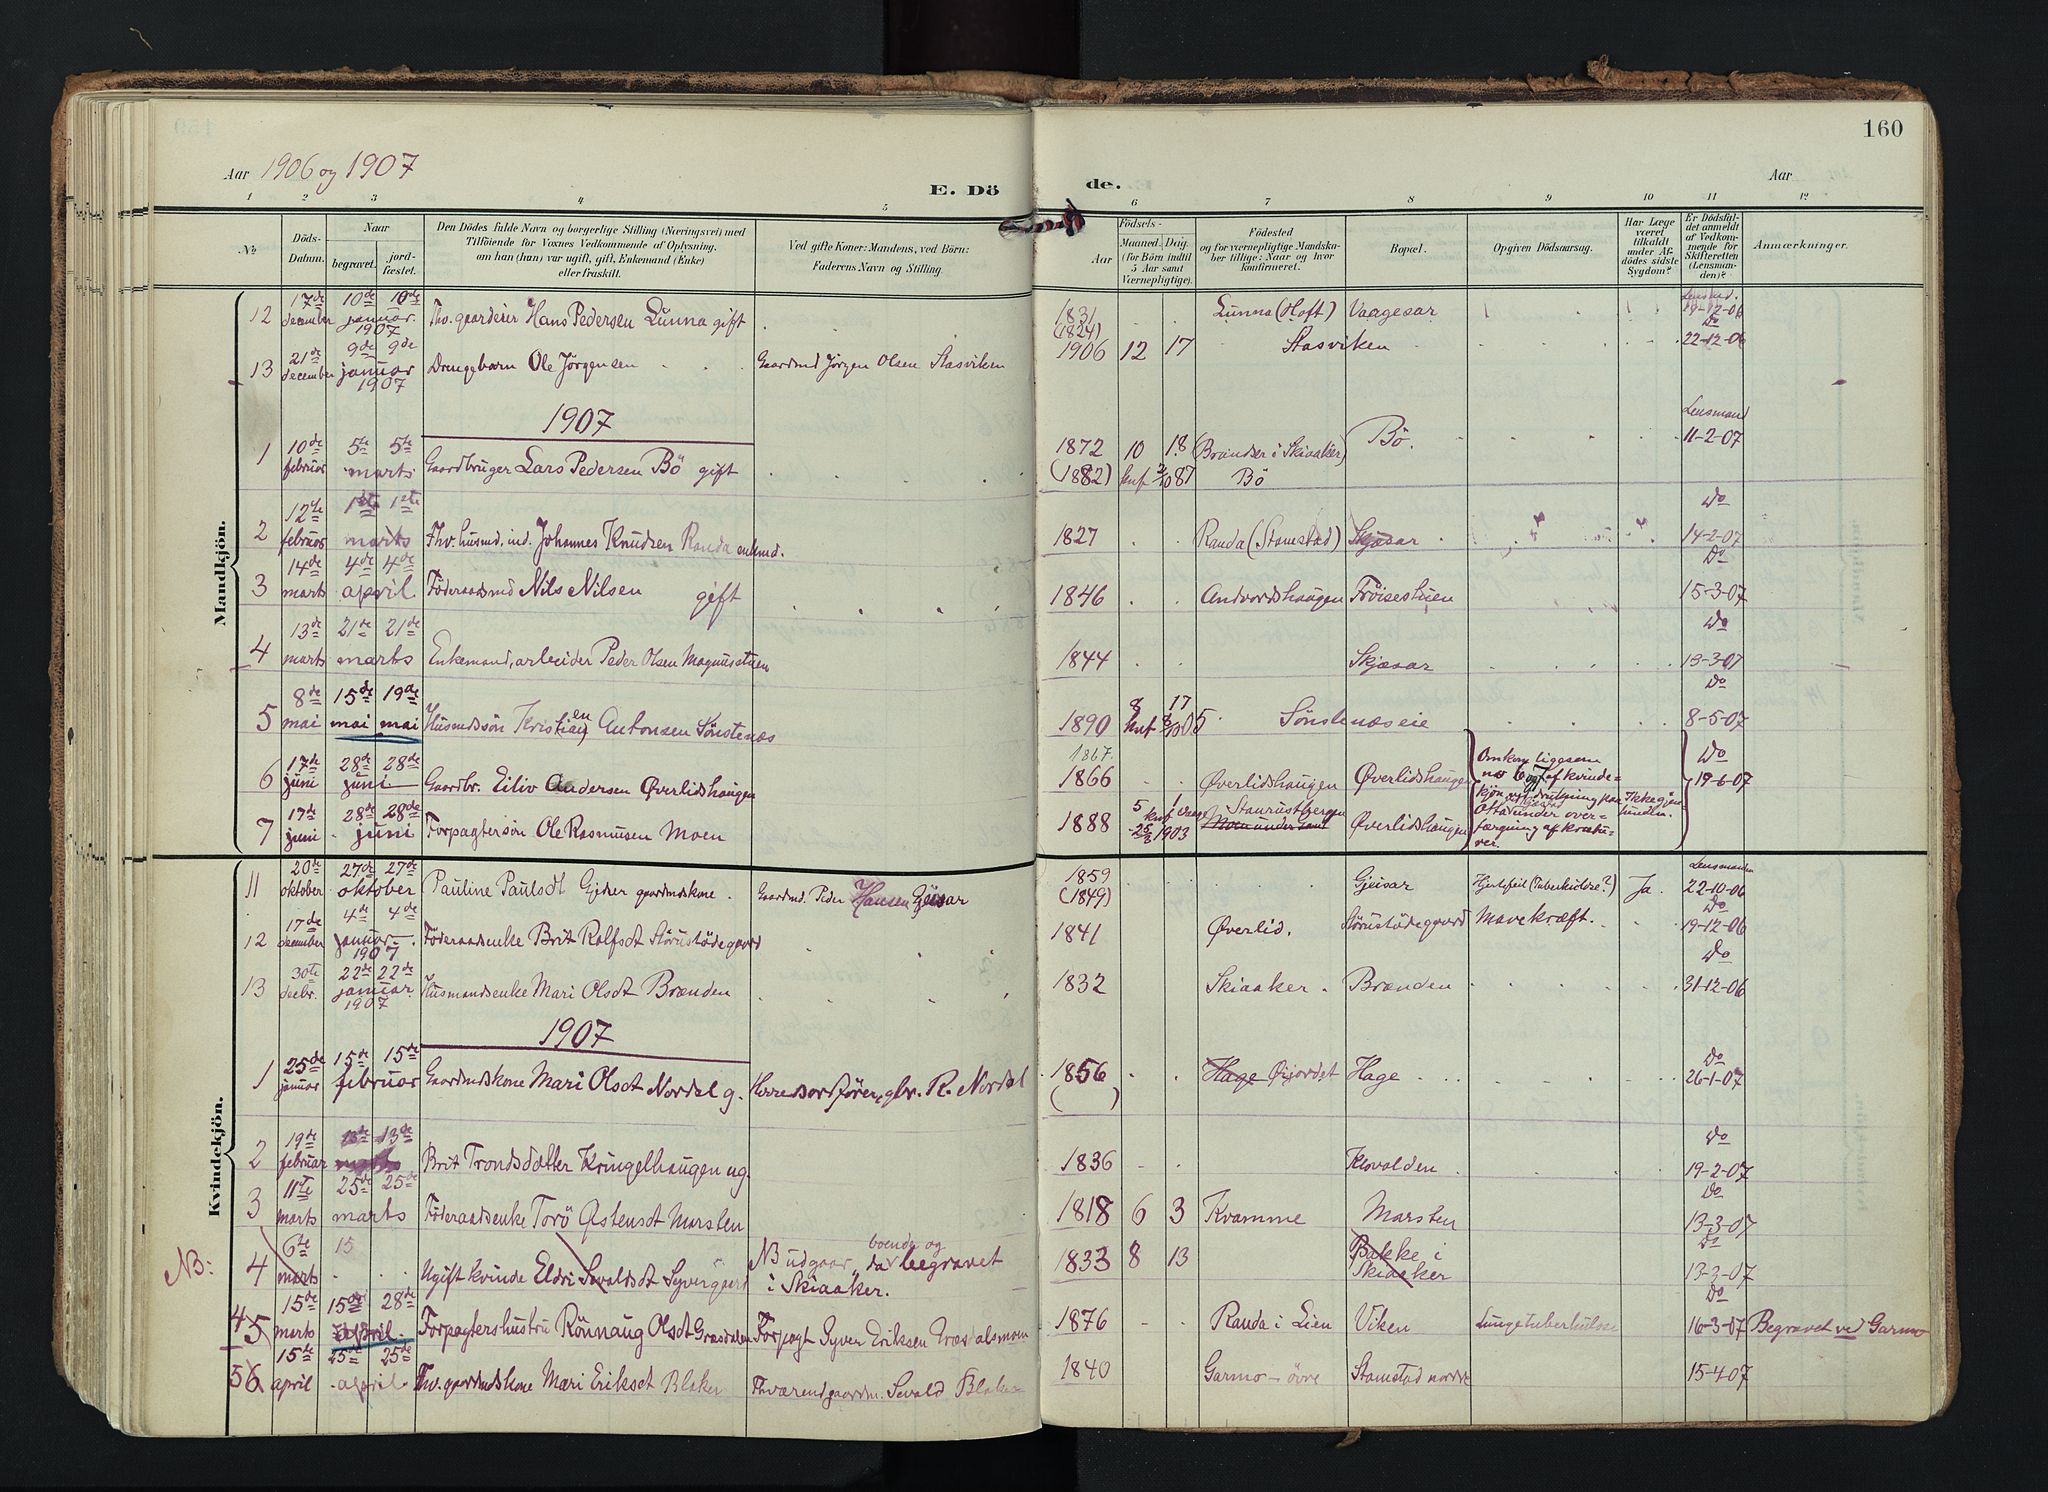 160
Aar 1906 og 1907
E. Dö
de.
Aar
1 2 3 4 5 6 7 8 9 10 11 12
No
Döds-Datum.
Naar
begravet.
jordfæstet.
Den Dödes fulde Navn og borgerlige Stilling (Næringsvei) med
Tilföiende for Voxnes Vedkommende af Oplysning,
om han (hun) var ugift, gift, Enkemand (Enke)
eller fraskilt.
Ved gifte Koner: Mandens, ved Börn:
Faderens Navn og Stilling.
Födsels-
Aar
Maaned. Dag.
(for Börn indtil
5 Aar samt
Værnepligtige).
Födested
og for værnepligtige Mandska-
ber tillige: Naar og hvor
konfirmeret.
Bopæl.
Opgiven Dödsaarsag.
Har Læge
været
tilkaldt
under Af-
dödes sidste
Sygdom?
Er Dödsfal-
det anmeldt
af Vedkom-
mende for
Skifteretten
(Lensman-
den)?
Anmærkninger.
Mandkjön.
12 17de december 10de januar 1907 10de Fhv. gaardeier Hans Pedersen Lunna gift 1831 (1824) Lunna (Hoft) Vaagesar Lensmd. 19-12-06
13 21de december 9de januar 1907 9de Drengebarn Ole Jørgensen Gaardmd Jørgen Olsen Stasviken 1906 12 17 Stasviken Do 22-12-06
1907
1 10de februar 5te marts 5te Gaardbruger Lars Pedersen Bö gift 1872 (1882) 10 18 knf 2/10 87 (Brandser i Skiaaker) Bö Bö. Lensmand 11-2-07
2 12te februar 1ste marts 1ste Fhv. husmd. ind. Johannes Knudsen Randa enkmd. 1827 Randa (Stamstad) Skjæsar Do 14-2-07
3 14de marts 4de april 4de Föderaadsmd Nils Nilsen gift 1846 Andvordshaugen Fröisestuen Do 15-3-07
4 13de marts 21de marts 21de Enkemand, arbeider Peder Olsen Magnusstuen 1844 Skjæsar Do 13-3-07
5 8de mai 15de mai 19de mai Husmdssön Kristian en Antonsen Sönstenæs 1890 8 17 knf 8/10 05 Sönstenæseie Do 8-5-07
6 17de juni 28de juni 28de Gaardbr. Eiliv Andersen Øverlidshaugen 1867. 1866 Øverlidshaugen Øverlidshaugen Do 19-6-07
7 17de juni 28de juni 28de Forpagtersön Ole Rasmussen Moen 1888 5 1 knf 25/8 1903 Staurustbergen Moen under samt Øverlidshaugen
Kvindekjön.
11 20de oktober 27de oktober 27de Pauline Paulsdt Gjeser gaardmdskone. Gaardmd. Peder Hansen Gjeisar 1859 (1849) Gjeisar Hjertefeil (Tuberkulose?) Ja Lensmanden 22-10-06
12 17de december 4de januar 1907 4de Föderaadsenke Brit Rolfsdt Störustödegaard 1841 Øverlid. Störustödegaard Mavekræft. Do 19-12-06
13 30te decbr. 22de januar 1907 22de Husmandsenke Mari Olsdt Brænden 1832 Skiaaker. Brænden Do 31-12-06
1907
1 25de januar 15de februar 15de Gaardmdskone Mari Olsdt Nordal g. Herredsordförer, gbr. R. Nordal 1856 ( ) Hage Øijordet Hage Do 26-1-07
2 19de februar 13de marts 13de Brit Trondsdatter Kringelhaugen ug. 1836 Klovolden Do 19-2-07
3 11te marts 25de marts 25de Föderaadsenke Torö Østensdt Marsten 1818 6 3 Kvamme Marsten Do 13-3-07
NB: 4 6te marts 15 Ugift kvinde Eldri Sevaldsdt Syvergaard NB udgaar, boende og da begravet i Skiaaker. 1833 8 13 Bakke i Skiaaker Do 13-3-07
4 5 15de marts 15de april. 28de Forpagtershustru Rönnaug Olsdt Graadalen Forpagt Syver Eriksen Træsalsmoen 1876 Randa i Lien Viken Lungetuberkulose Do 16-3-07 Begravet ved Garmo
5 6 15de april 25de april 25de Fhv. gaardmdskone Mari Eriksdt Blaker Fhværend gaardm. Sevald Blaker 1840 Garmo-övre Stamstad nordre 15-4-07